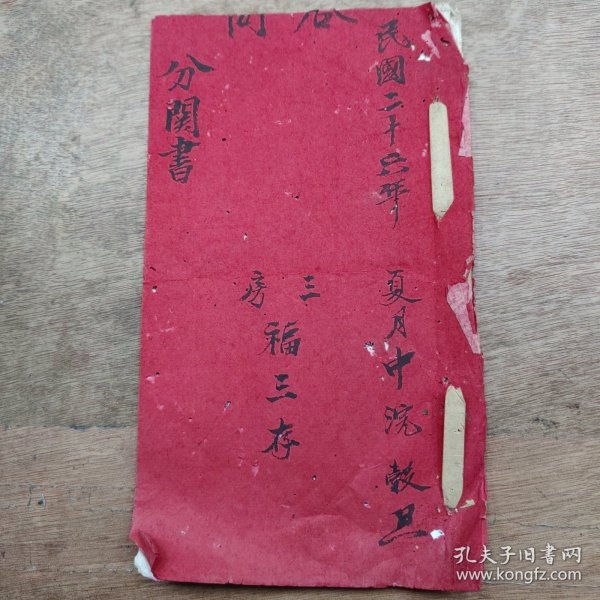 民國二十六年 夏月中浣 穀旦
三房
福三存
分関書
孔夫子旧书网
www.kongfz.com